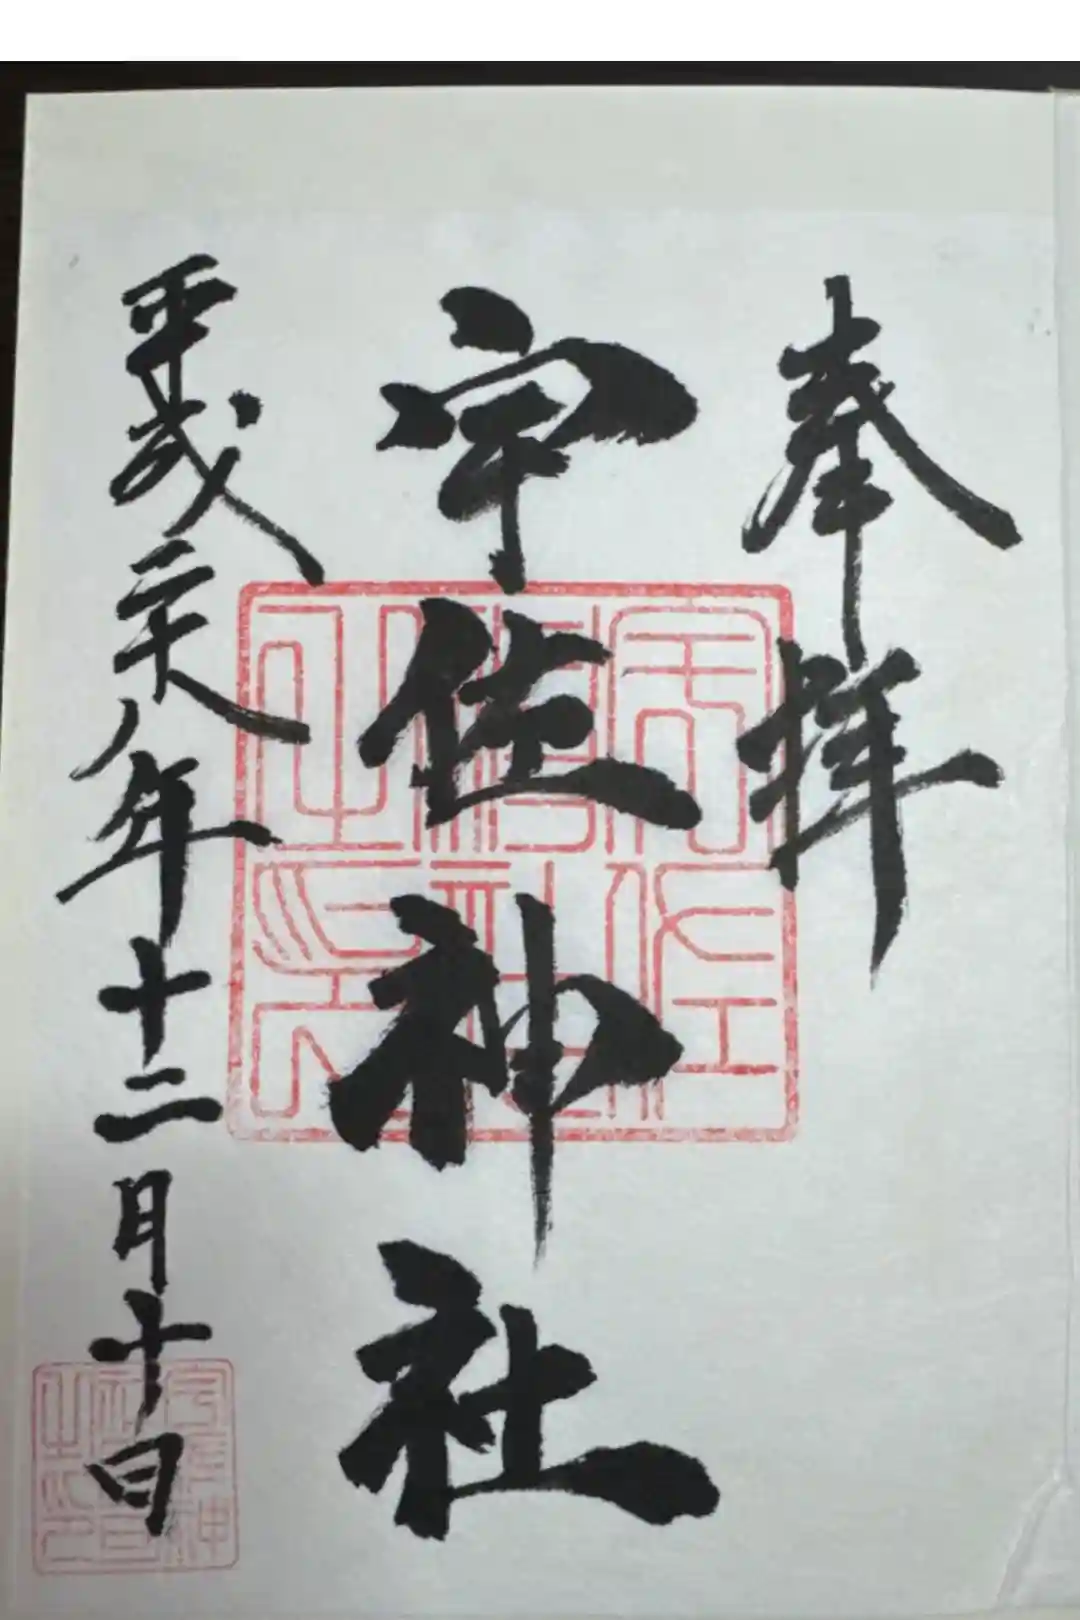 奉拝
宇佐神社
平成二十八年十二月十日
宇佐神社之印